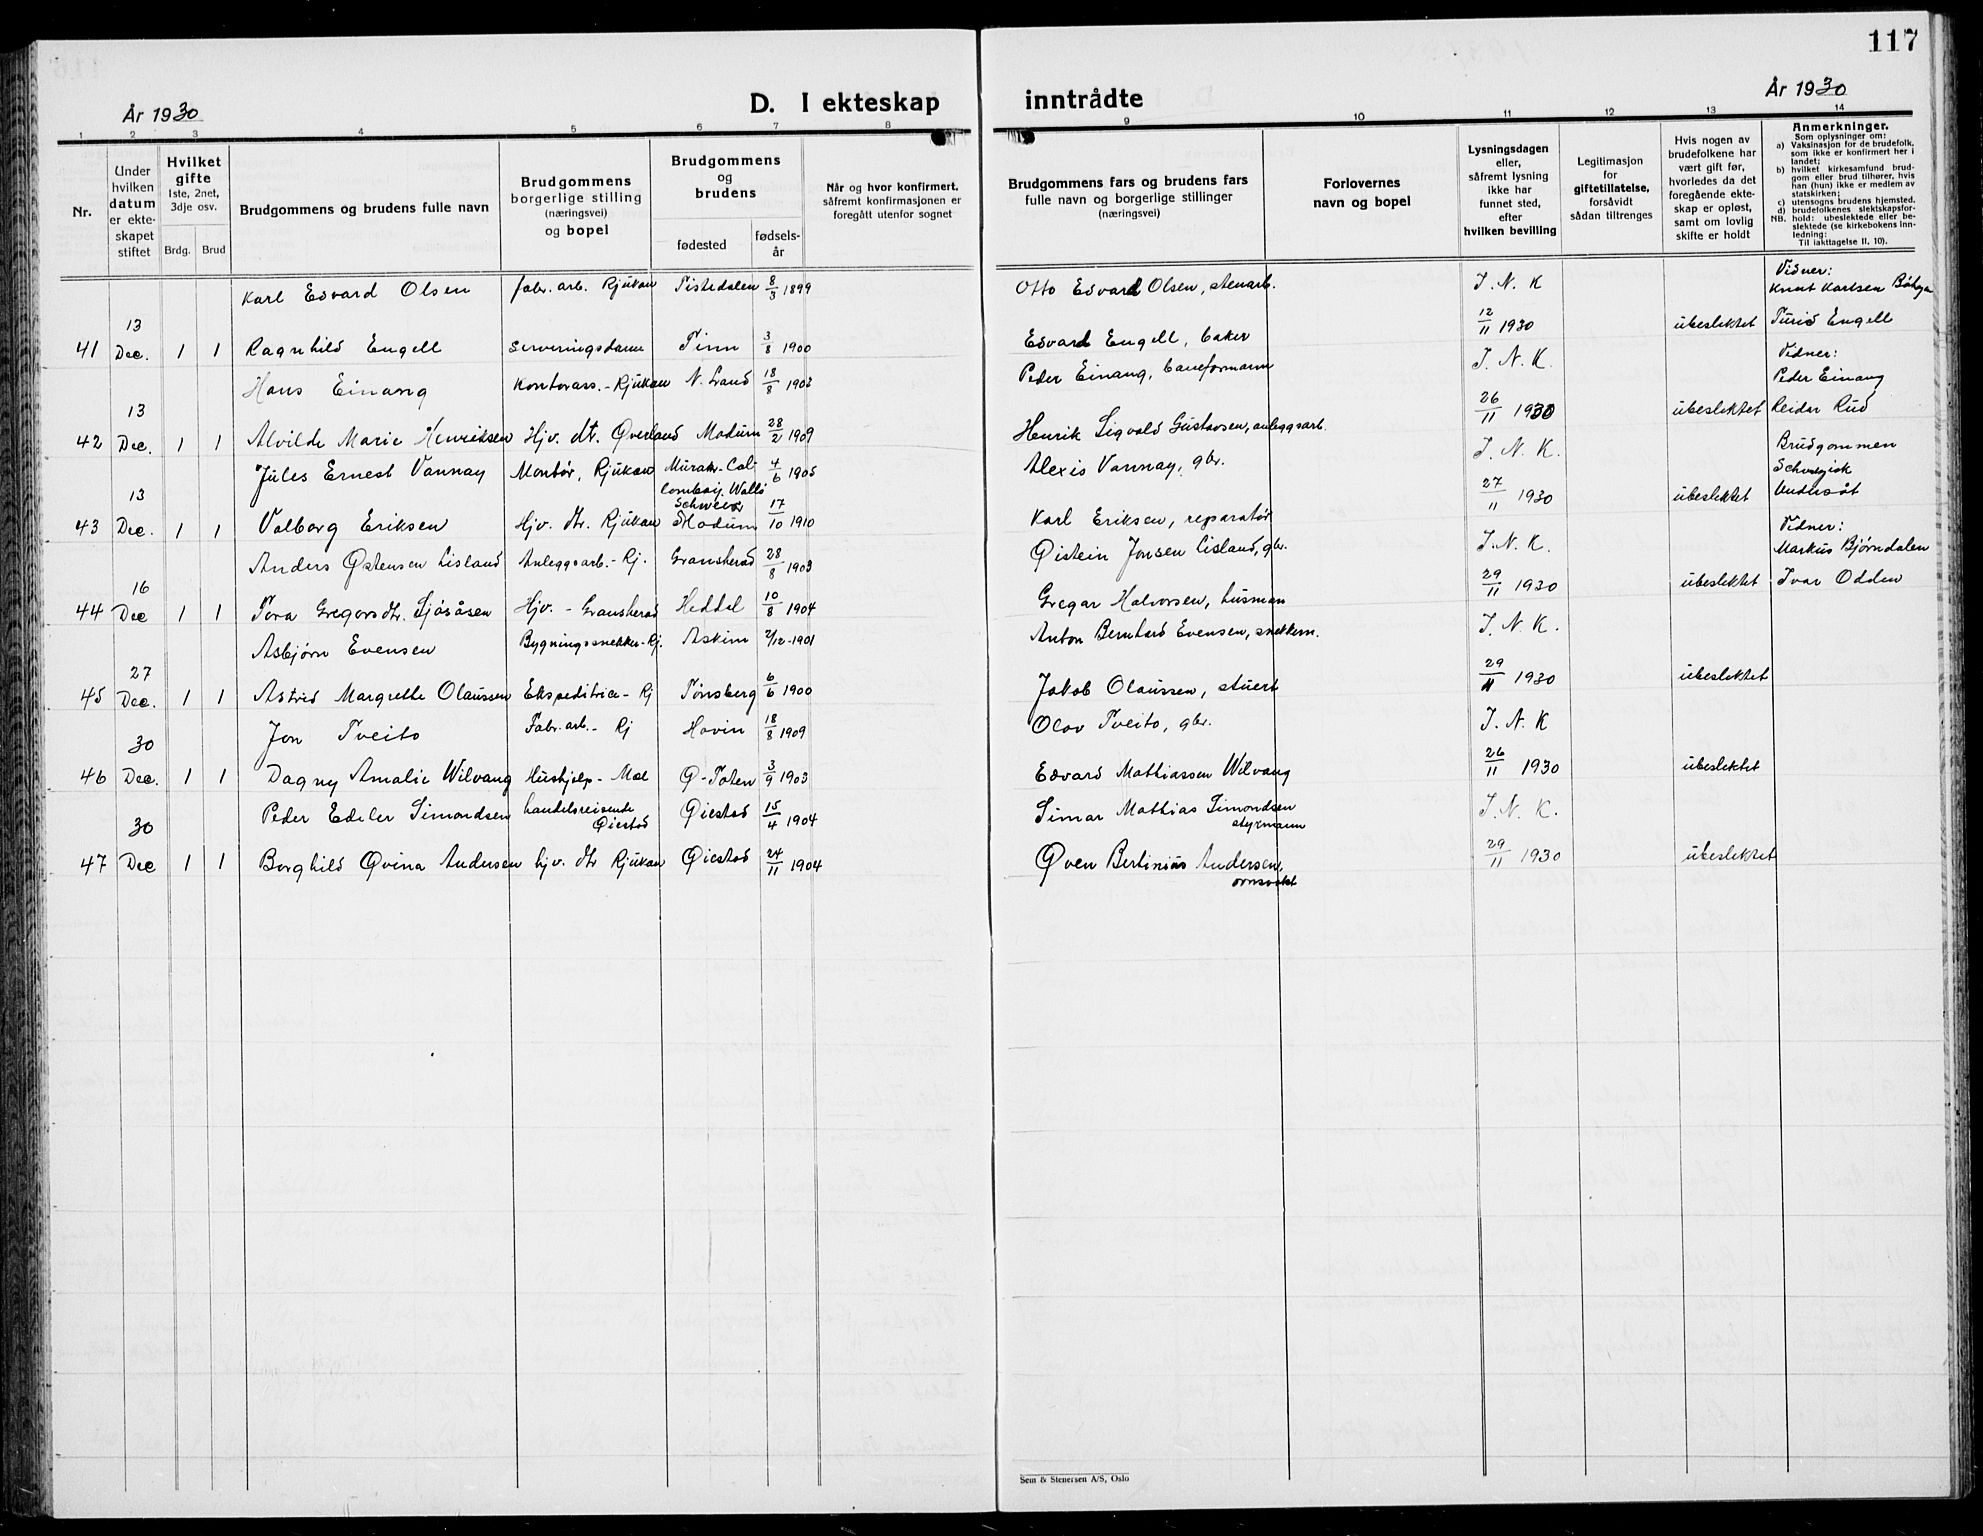 117
År 1930
D. I ekteskap inntrådte
År 1930
1 2 3 4 5 6 7 8 9 10 11 12 13 14
Nr.
Under hvilken datum er ekteskapet stiftet
Hvilket gifte
1ste, 2net, 3dje osv.
Brdg. Brud
Brudgommens og brudens fulle navn
Brudgommens borgerlige stilling (næringsvei) og bopel
Brudgommens og brudens
fødested
fødselsår
Når og hvor konfirmert, såfremt konfirmasjonen er foregått utenfor sognet
Brudgommens fars og brudens fars fulle navn og borgerlige stillinger (næringsvei)
Forlovernes navn og bopel
Lysningsdagen eller, såfremt lysning ikke har funnet sted, efter hvilken bevilling
Legitimasjon for giftetillatelse, forsåvidt sådan tiltrenges
Hvis nogen av brudefolkene har vært gift før, hvorledes da det foregående ekteskap er opløst, samt om lovlig skifte er holdt
Anmerkninger.
Som oplysninger om:
a) Vaksinasjon for de brudefolk, som ikke er konfirmert her i landet;
b) hvilket kirkesamfund brudgom eller brud tilhører, hvis han (hun) ikke er medlem av statskirken;
c) utensogns brudens hjemsted.
d) brudefolkenes slektskapsforhold: ubeslektede eller beslektede (se kirkebokens innledning:
NB. Til iakttagelse II. 10).
Karl Edvard Olsen fabr. arb. Rjukan Tistedalen 8/3 1899 Otto Edvard Olsen, stenarb. I. N. K Vidner: Knut Karlsen
41 13 Dec. 1 1 Ragnhild Engell Serveringsdame Tinn 3/8 1900 Edvard Engell, baker 12/11 1930 ubeslektet Turid Engell
Hans Einang Kontorass. - Rjukan N. Land 18/8 1903 Peder Einang, baneformann I. N. K. Vidner: Peder Einang
42 13 Dec. 1 1 Alvilde Marie Henriksen Hjv. dt. Øverland Modum 28/2 1909 Henrik Sigvald Gustavsen, anleggsarb. 26/11 1930 ubeslektet Reidar Rud
Jules Ernest Vannay Montør, Rjukan 4/6 1905 Alexis Vannay, gbr. I. N. K. Brudgommen
43 13 Dec. 1 1 Valborg Eriksen Hjv. dtr. Rjukan Modum 17/10 1910 Karl Eriksen, reparatør 27/11 1930 ubeslektet
Anders Østensen Lisland Anleggsarb. - Rj. Gransherad 28/8 1903 Øistein Jonsen Lisland, gbr. I. N. K. Vidner: Markus Bjørndalen
44 16 Dec 1 1 Tora Gregorsdtr. Sjåsåsen Hjv. - Gransherad Heddal 10/8 1904 Gregar Halvorsen, husman 29/11 1930 ubeslektet Ivar Odden
Asbjørn Evensen Bygningssnekker - Rj. Askim 2/12 - 1901 Anton Bernhard Evensen, snekkerm. I. N. K.
45 27 Dec. 1 1 Astrid Margrethe Olaussen Ekspeditrice - Rj Tønsberg 6/6 1900 Jakob Olaussen, stuert 29/11 1930 ubeslektet
Jon Tveito Fabr. arb. - Rj Hovin 18/8 1909 Olav Tveito, gbr. I. N. K
46 30 Dec. 1 1 Dagny Amalie Wilvang Hushjelp - Mæl Ø-Toten 3/9 1903 Edvard Mathiassen Wilvang 26/11 1930 ubeslektet
Peder Edeler Simondsen handelsreisende Øiestad Øiestad 15/4 1904 Simar Mathias Simondsen styrmann I. N. K.
47 30 Dec 1 1 Borghild Øvina Andersen hjv. dtr Rjukan Øiestad 24/11 1904 Øven Bertinius Andersen, ovnsvakt 29/11 1930 ubeslektet
Sem & Stenersen A/S, Oslo